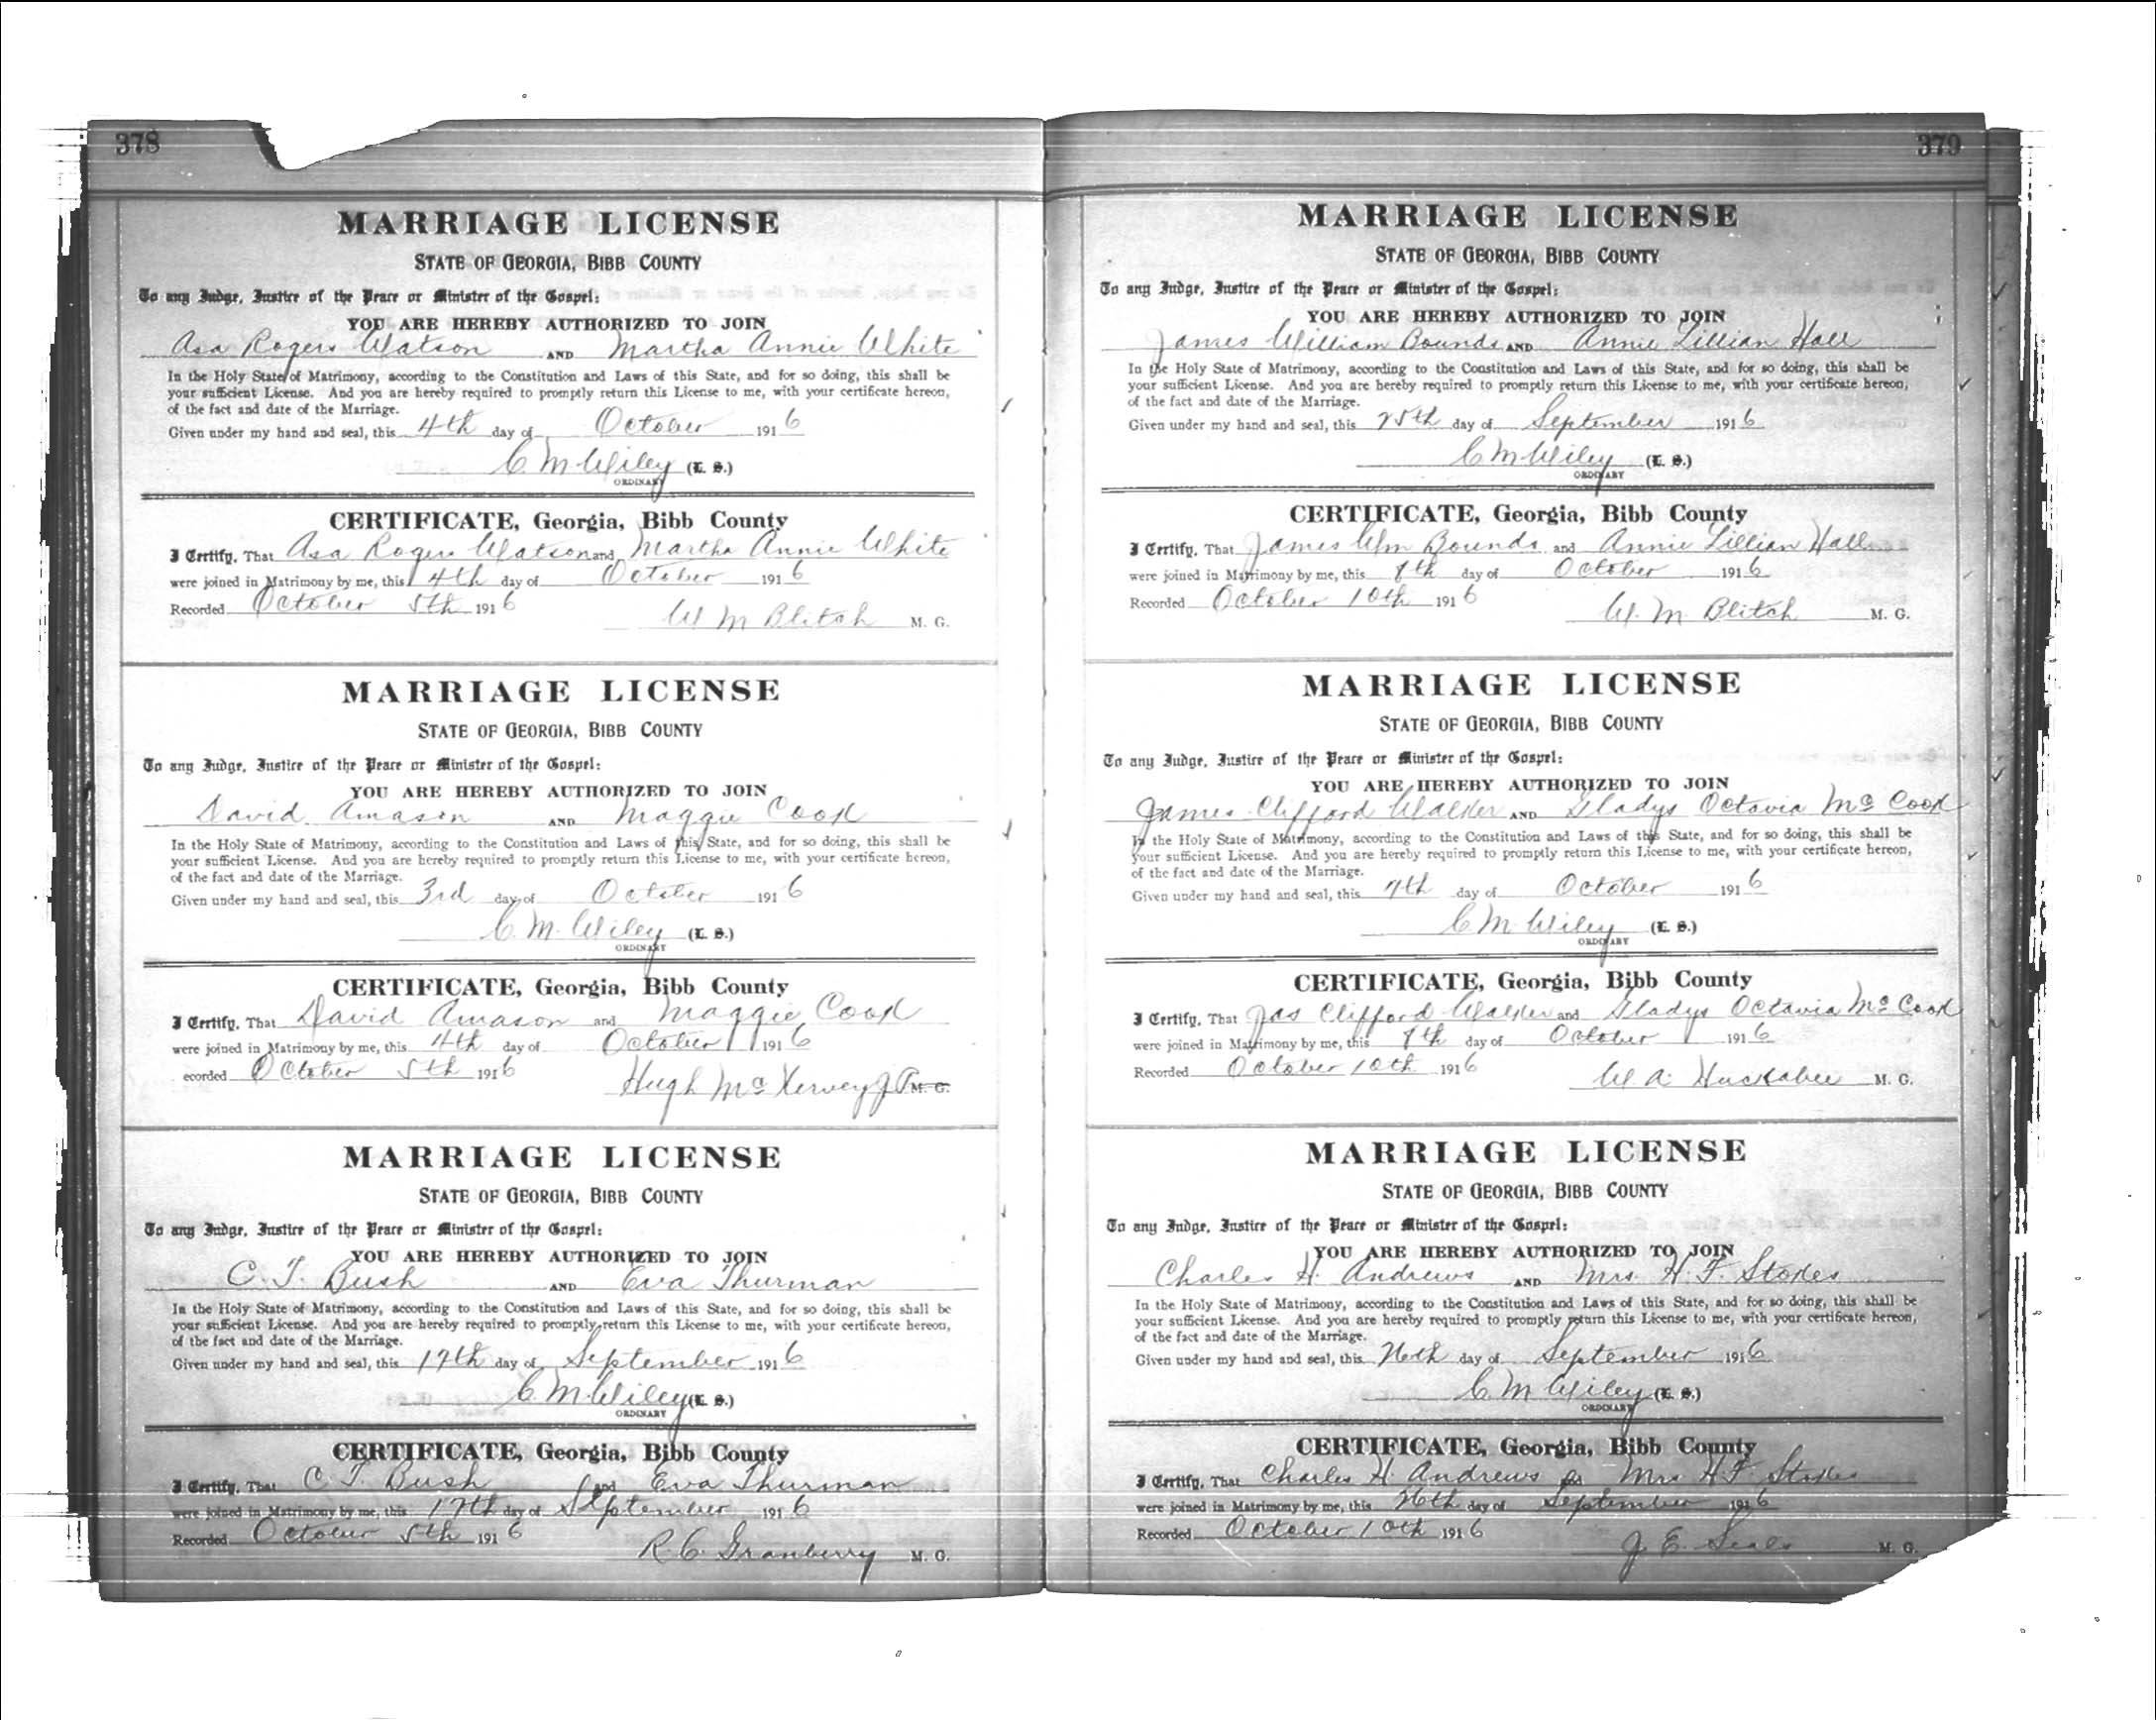 378
MARRIAGE LICENSE
STATE OF GEORGIA, BIBB COUNTY
To any Judge, Justice of the Peace or Minister of the Gospel:
YOU ARE HEREBY AUTHORIZED TO JOIN
Asa Rogers Watson AND Martha Annie White
In the Holy State of Matrimony, according to the Constitution and Laws of this State, and for so doing, this shall be
your sufficient License. And you are hereby required to promptly return this License to me, with your certificate hereon,
of the fact and date of the Marriage.
Given under my hand and seal, this 4th day of October 1916
C M Wiley (L. S.)
ORDINARY
CERTIFICATE, Georgia, Bibb County
I Certify, That Asa Rogers Watson and Martha Annie White
were joined in Matrimony by me, this 4th day of October 1916
Recorded October 5th 1916
W M Blitch M. G.
MARRIAGE LICENSE
STATE OF GEORGIA, BIBB COUNTY
To any Judge, Justice of the Peace or Minister of the Gospel:
YOU ARE HEREBY AUTHORIZED TO JOIN
David Amason AND Maggie Cook
In the Holy State of Matrimony, according to the Constitution and Laws of this State, and for so doing, this shall be
your sufficient License. And you are hereby required to promptly return this License to me, with your certificate hereon,
of the fact and date of the Marriage.
Given under my hand and seal, this 3rd day of October 1916
C. M. Wiley (L. S.)
ORDINARY
CERTIFICATE, Georgia, Bibb County
I Certify, That David Amason and Maggie Cook
were joined in Matrimony by me, this 4th day of October 1916
ecorded October 5th 1916
Hugh Mc Kervey J P M. G.
MARRIAGE LICENSE
STATE OF GEORGIA, BIBB COUNTY
To any Judge, Justice of the Peace or Minister of the Gospel:
YOU ARE HEREBY AUTHORIZED TO JOIN
C. T. Bush AND Eva Thurman
In the Holy State of Matrimony, according to the Constitution and Laws of this State, and for so doing, this shall be
your sufficient License. And you are hereby required to promptly return this License to me, with your certificate hereon,
of the fact and date of the Marriage.
Given under my hand and seal, this 17th day of September 1916
C. M. Wiley (L. S.)
ORDINARY
CERTIFICATE, Georgia, Bibb County
I Certify, That C. T. Bush and Eva Thurman
were joined in Matrimony by me, this 17th day of September 1916
Recorded October 5th 1916
R. C. Granberry M. G.
379
MARRIAGE LICENSE
STATE OF GEORGIA, BIBB COUNTY
To any Judge, Justice of the Peace or Minister of the Gospel:
YOU ARE HEREBY AUTHORIZED TO JOIN
James William Bounds AND Annie Lillian Hall
In the Holy State of Matrimony, according to the Constitution and Laws of this State, and for so doing, this shall be
your sufficient License. And you are hereby required to promptly return this License to me, with your certificate hereon,
of the fact and date of the Marriage.
Given under my hand and seal, this 25th day of September 1916
C M Wiley (L. S.)
ORDINARY
CERTIFICATE, Georgia, Bibb County
I Certify, That James Wm Bounds and Annie Lillian Hall
were joined in Matrimony by me, this 8th day of October 1916
Recorded October 10th 1916
W. M. Blitch M. G.
MARRIAGE LICENSE
STATE OF GEORGIA, BIBB COUNTY
To any Judge, Justice of the Peace or Minister of the Gospel:
YOU ARE HEREBY AUTHORIZED TO JOIN
James Clifford Walker AND Gladys Octavia Mc Cook
In the Holy State of Matrimony, according to the Constitution and Laws of this State, and for so doing, this shall be
your sufficient License. And you are hereby required to promptly return this License to me, with your certificate hereon,
of the fact and date of the Marriage.
Given under my hand and seal, this 7th day of October 1916
C M Wiley (L. S.)
ORDINARY
CERTIFICATE, Georgia, Bibb County
I Certify, That Jas Clifford Walker and Gladys Octavia Mc Cook
were joined in Matrimony by me, this 8th day of October 1916
Recorded October 10th 1916
W. A. Huckabee M. G.
MARRIAGE LICENSE
STATE OF GEORGIA, BIBB COUNTY
To any Judge, Justice of the Peace or Minister of the Gospel:
YOU ARE HEREBY AUTHORIZED TO JOIN
Charles H. Andrews AND Mrs. H. F. Stokes
In the Holy State of Matrimony, according to the Constitution and Laws of this State, and for so doing, this shall be
your sufficient License. And you are hereby required to promptly return this License to me, with your certificate hereon,
of the fact and date of the Marriage.
Given under my hand and seal, this 26th day of September 1916
C. M Wiley (L. S.)
ORDINARY
CERTIFICATE, Georgia, Bibb County
I Certify, That Charles H. Andrews and Mrs H. F. Stokes
were joined in Matrimony by me, this 26th day of September 1916
Recorded October 10th 1916
J. E. Seals M. G.